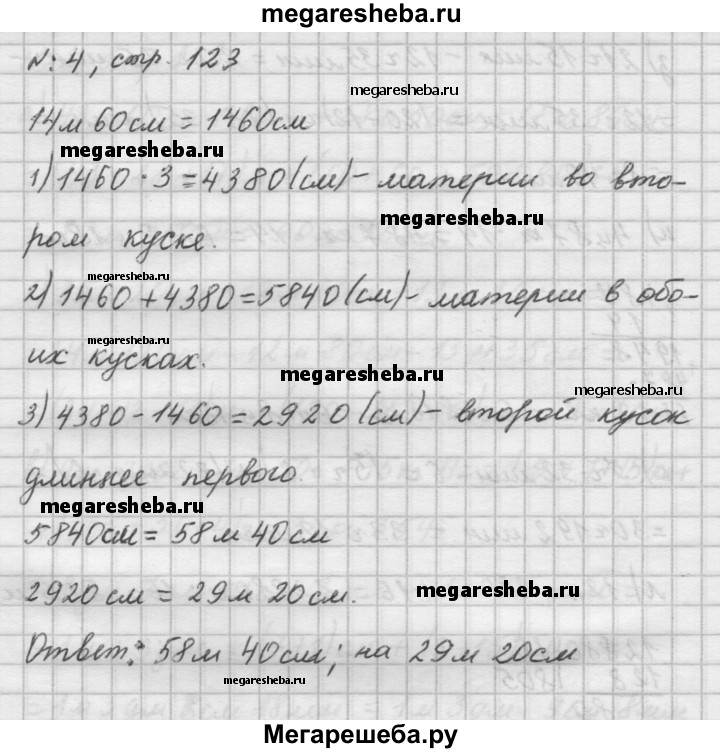 megaresheba.ru
№ 4, стр. 123
megaresheba.ru
14м 60см = 1460см
megaresheba.ru
1) 1460 · 3 = 4380 (см) - материи во вто-
megaresheba.ru
ром куске.
megaresheba.ru
2) 1460 + 4380 = 5840 (см) - материи в обо-
megaresheba.ru
их кусках.
megaresheba.ru
megaresheba.ru
3) 4380 - 1460 = 2920 (см) - второй кусок
длиннее первого.
megaresheba.ru
5840см = 58м 40см
megaresheba.ru
2920см = 29м 20см.
Ответ: 58м 40см; на 29м 20см
megaresheba.ru
Мегарешеба.ру